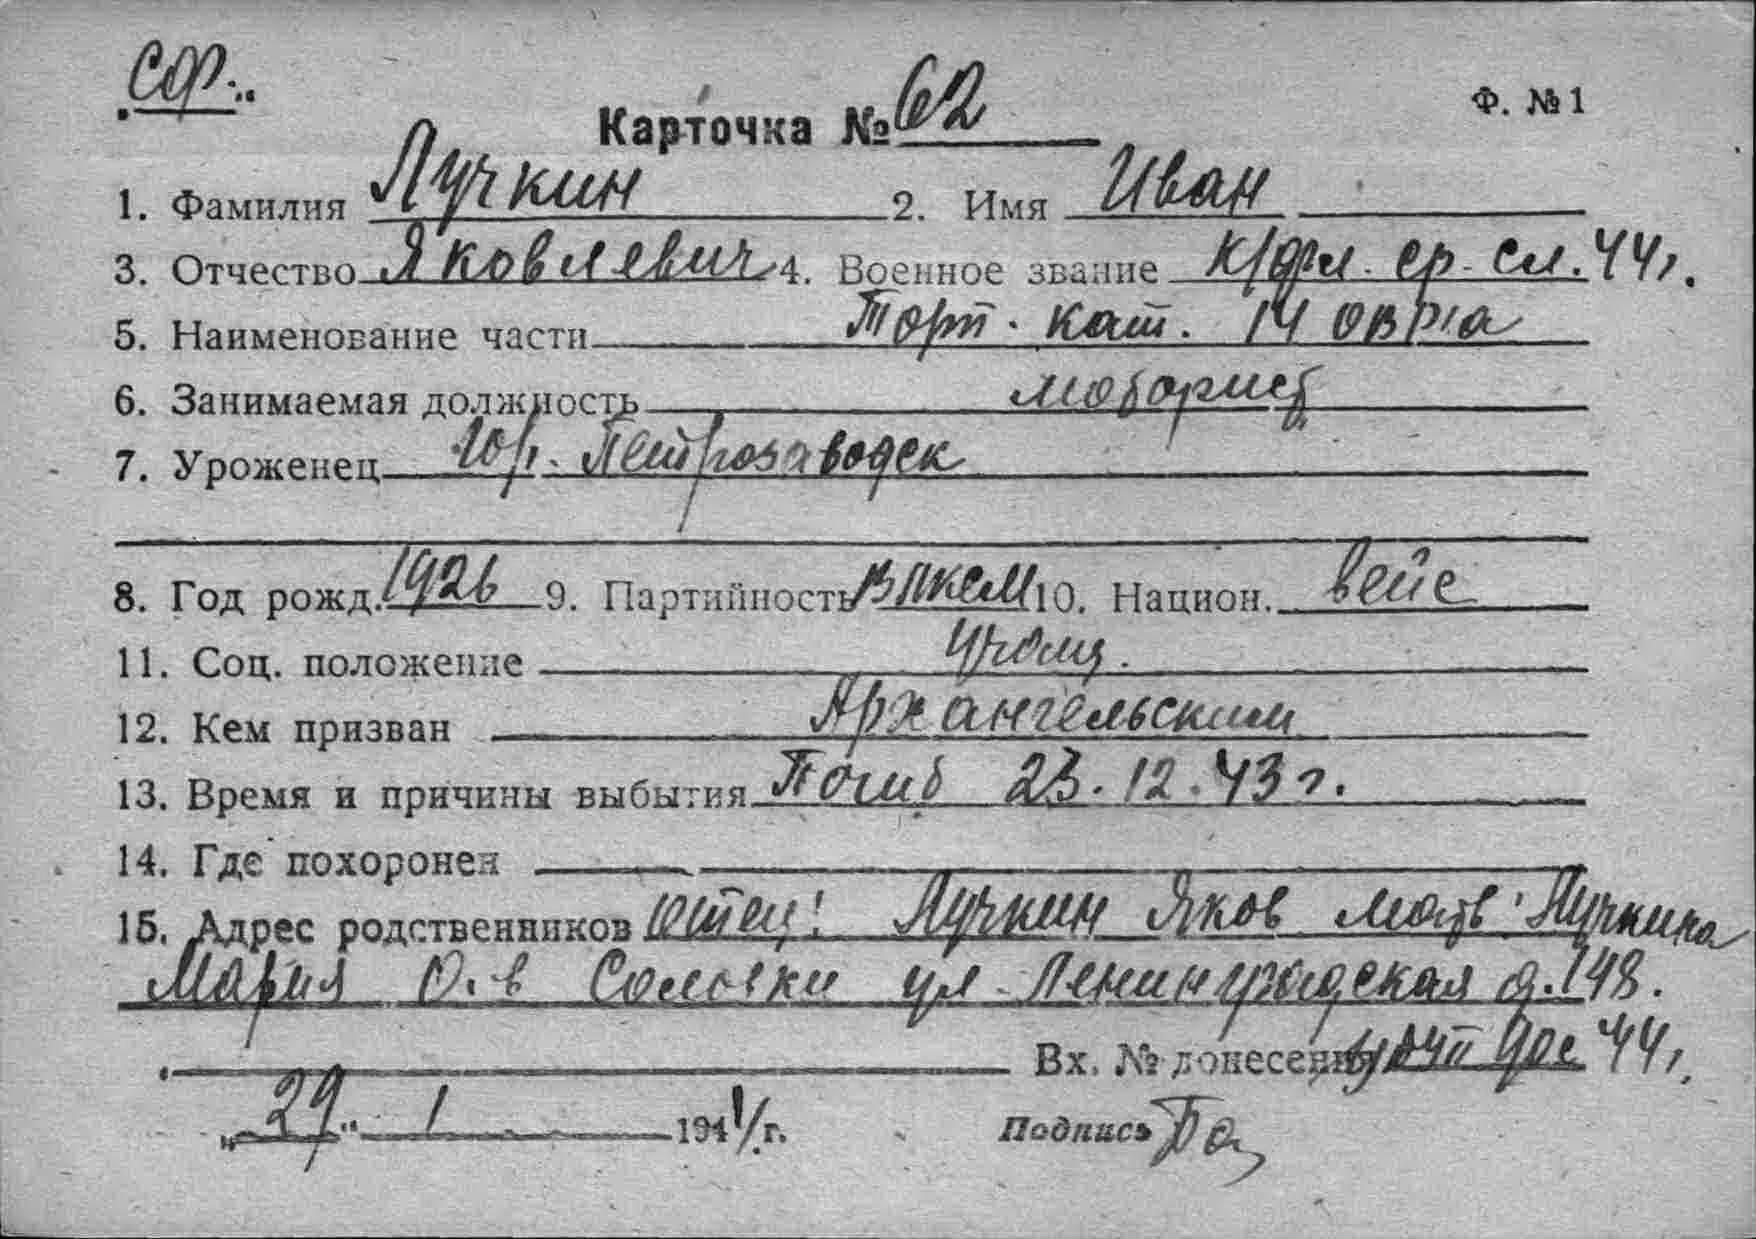 СФ.
Карточка № 62
Ф. № 1
1. Фамилия Лучкин 2. Имя Иван
3. Отчество Яковлевич 4. Военное звание к/фл. ср. сл. 44г.
5. Наименование части Торп. кат. 14 ОВРа
6. Занимаемая должность моторист
7. Уроженец гор. Петрозаводск
8. Год рожд. 1926 9. Партийность ВЛКСМ 10. Национ. вепс
11. Соц. положение учащ.
12. Кем призван Архангельским
13. Время и причины выбытия Погиб 23.12.43 г.
14. Где похоронен
15. Адрес родственников отец: Лучкин Яков мать: Лучкина
Мария О.-в Соловки ул. Ленинградская д. 148.
Вх. № донесения 44г.
„29" 1 1944 г. Подпись